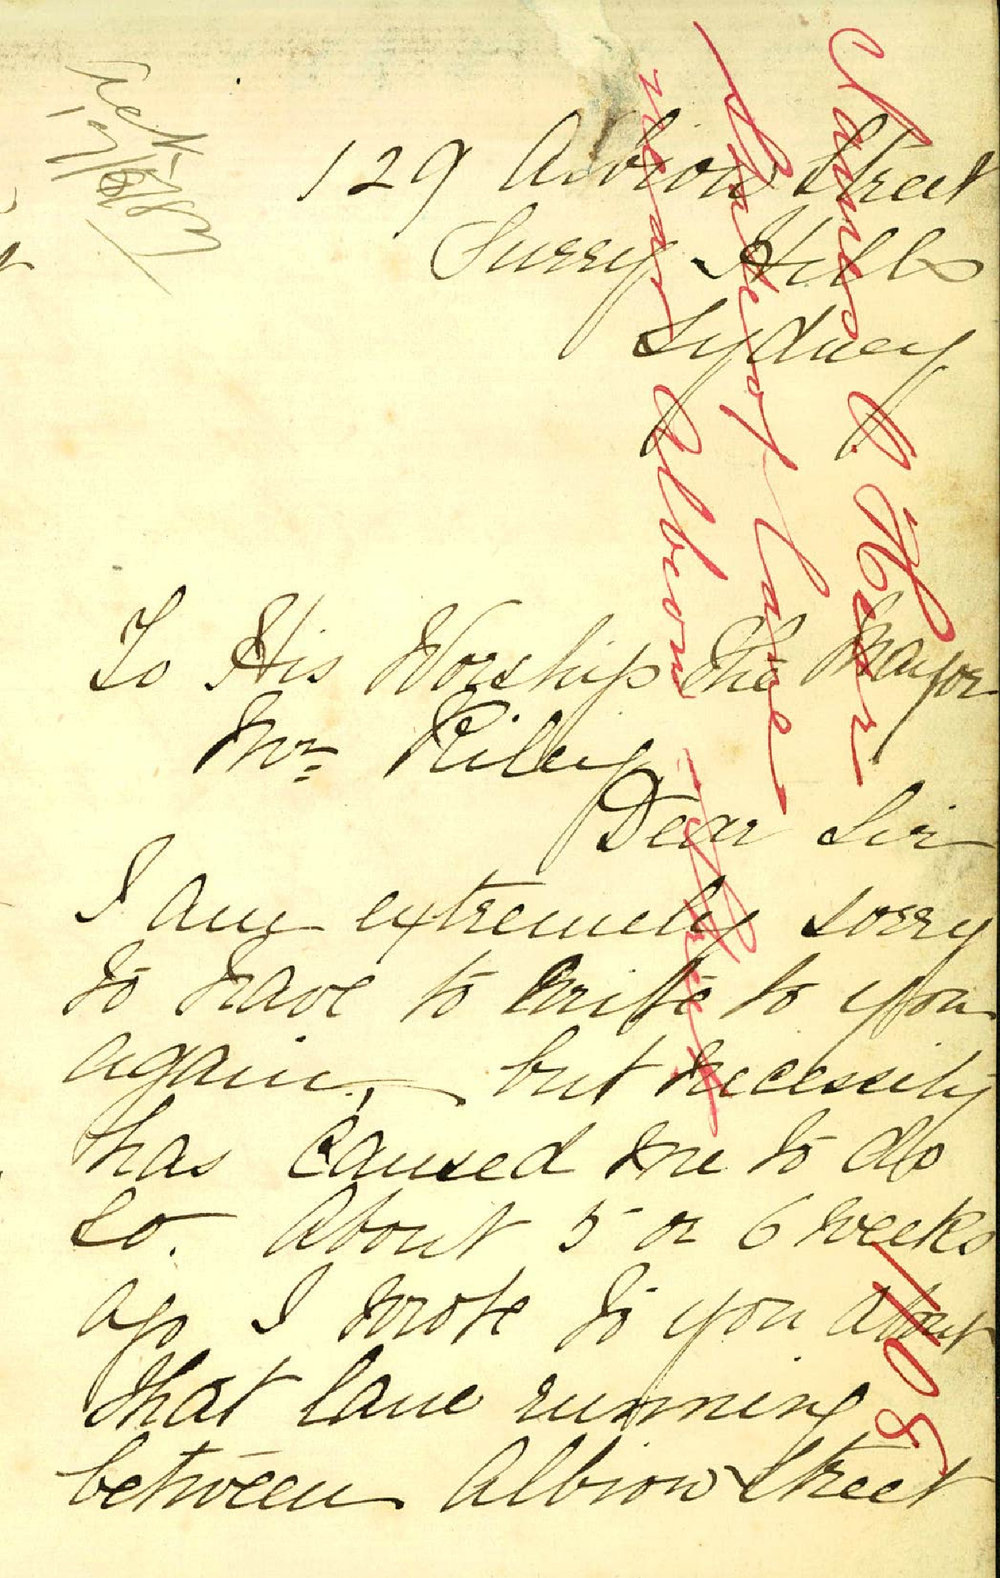 Ack
129 Albion Street
Surry Hills
Sydney
To His Worship the Mayor
Mr Riley
Dear Sir
I am extremely sorry
to have to write to you
again, but necessity
has caused me to do
so. About 5 or 6 weeks
ago I wrote to you about
that lane running
between Albion Street
James C
State of Lane
near Albion Street
1108